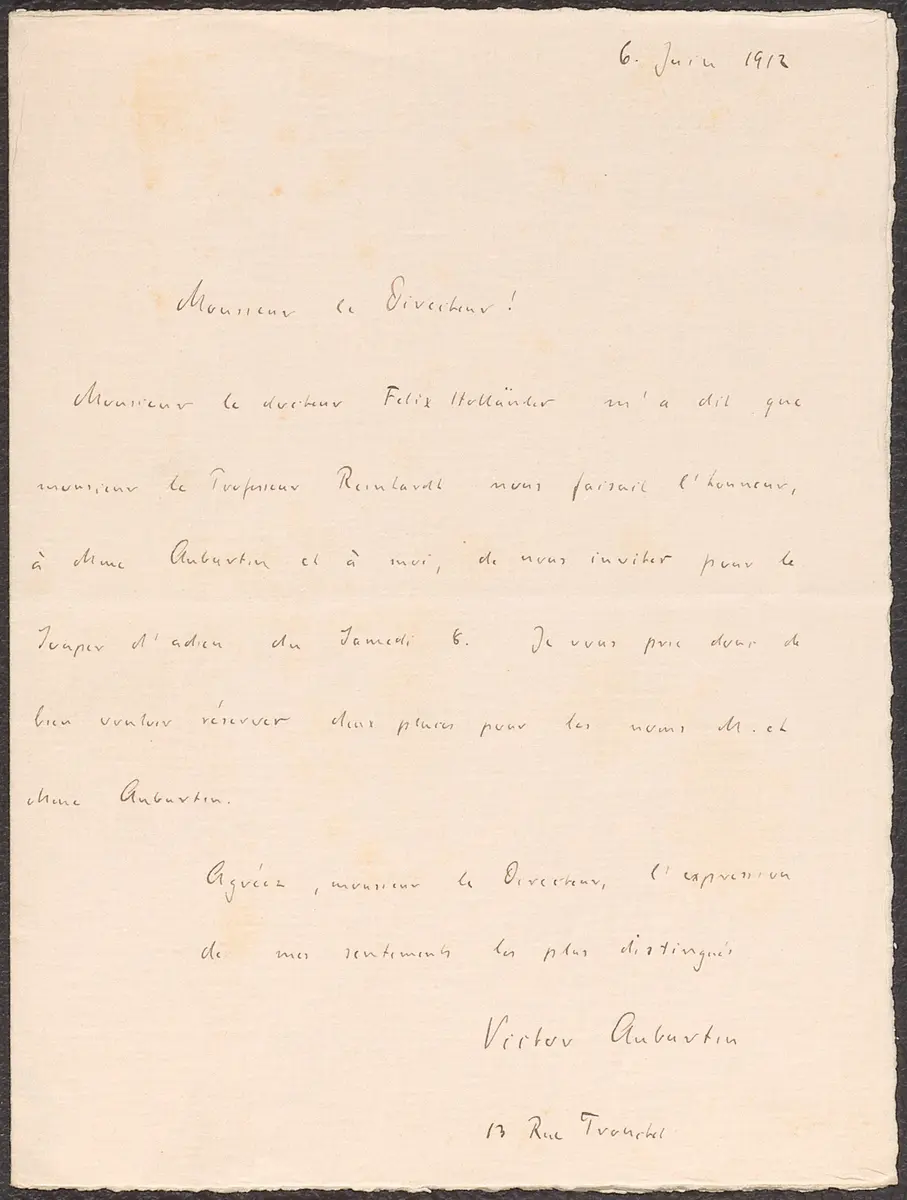 6. Juin 1912
Monsieur le Directeur!
Monsieur le docteur Felix Holländer m'a dit que
monsieur le Professeur Reinhardt nous faisait l'honneur,
à Mme Auburtin et à moi, de nous inviter pour le
souper d'adieu du Samedi 8. Je vous prie donc de
bien vouloir réserver deux places pour les noms M. et
Mme Auburtin.
Agréez, monsieur le Directeur, l'expression
de mes sentiments les plus distingués
Victor Auburtin
13 Rue Tronchet